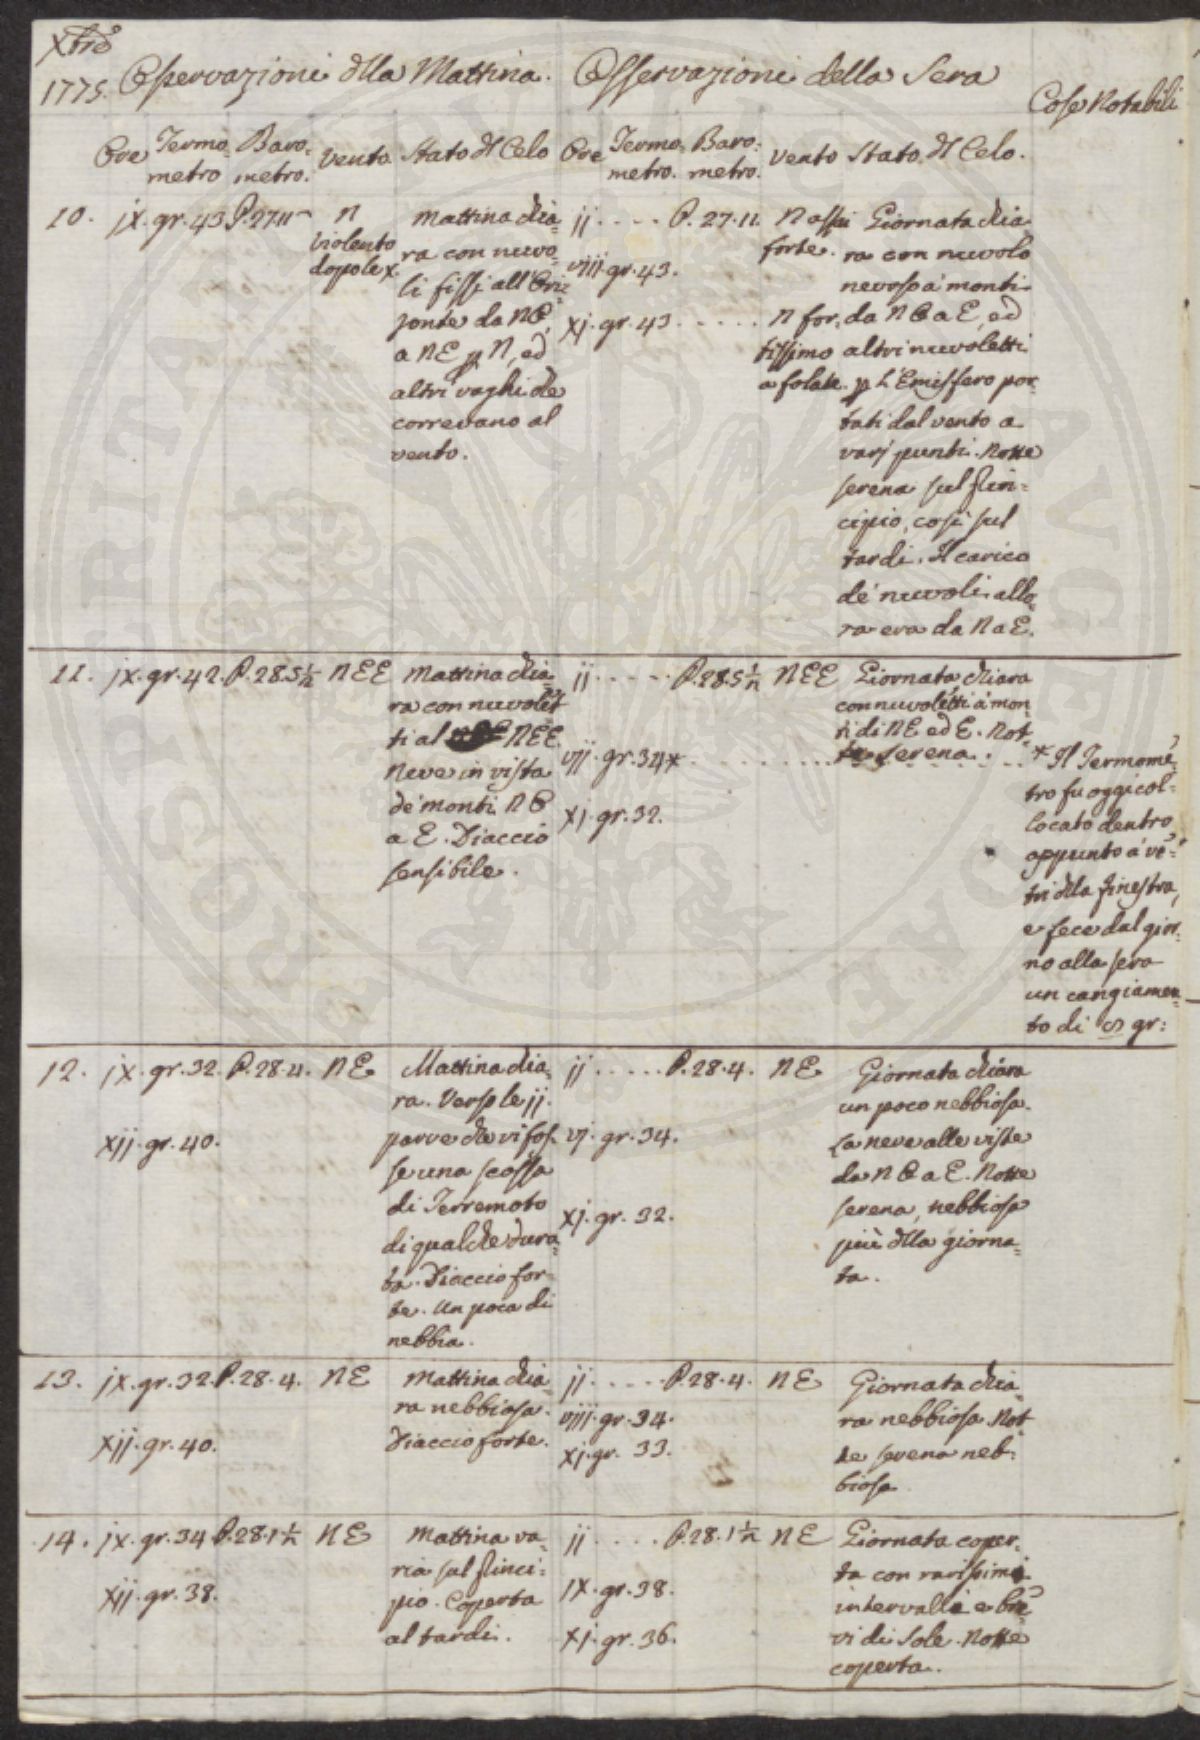 Xbre
1775. Osservazioni dlla Mattina. Osservazioni della Sera
Cose Notabili
Ore Termometro Barometro. Vento Stato dl Celo Ore Termometro. Barometro. Vento Stato dl Celo.
10. jx. gr. 43 P. 27 11 N
violento
dopo le x.
Mattina chia=
ra con nuvo=
li fissi all' Oriz
zonte da NO,
a NE p N, ed
altri vaghi che
correvano al
vento.
jj . . . . P. 27. 11. N assai
forte.
viij gr. 43.
xj. gr. 43. . . . . . N for=
tissimo
a folate.
Giornata chia=
ra con nuvolo
nevoso a' monti
da NO a E, ed
altri nuvoletti
p l'Emisfero por=
tati dal vento a
varj punti. Notte
serena sul prin=
cipio, così sul
tardi. Il carico
de' nuvoli allo=
ra era da N a E.
11. jx. gr. 42. P. 28. 5 1/2 NEE
Mattina chia=
ra con nuvolet
ti al NEE.
Neve in vista
de' monti NO
a E. Diaccio
sensibile.
jj . . . . . P. 28. 5 1/2 NEE
vij gr. 34*
xj. gr. 32.
Giornata chiara
con nuvoletti a' mon=
ti di NE ed E. Not=
te serena.
* Il Termome=
tro fu oggi col=
locato dentro
appunto a' ve=
tri dlla finestra,
e fece dal gior=
no alla sera
un cangiamen=
to di gr:
12. jx. gr. 32. P. 28. 4. NE
xij. gr. 40.
Mattina chia=
ra. Verso le jj.
parve che vi fos=
se una scossa
di Terremoto
di qualche dura=
ta. Diaccio for=
te. Un poco di
nebbia.
jj . . . . . P. 28. 4. NE
vj. gr. 34.
xj. gr. 32.
Giornata chiara
un poco nebbiosa.
La neve alle viste
da NO a E. Notte
serena, nebbiosa
più dlla giorna=
ta.
13. jx. gr. 32. P. 28. 4. NE
xij. gr. 40.
Mattina chia=
ra nebbiosa.
Diaccio forte.
jj . . . . P. 28. 4. NE
viij. gr. 34.
xj. gr. 33.
Giornata chia=
ra nebbiosa. Not
te serena neb=
biosa
14. jx. gr. 34 P. 28. 1 1/2 NE
xij. gr. 38.
Mattina va=
ria sul princi=
pio. Coperta
al tardi.
jj . . . . P. 28. 1 1/2 NE
IX. gr. 38.
xj. gr. 36.
Giornata coper=
ta con rarissimi
intervalli e bre=
vi di Sole. Notte
coperta.